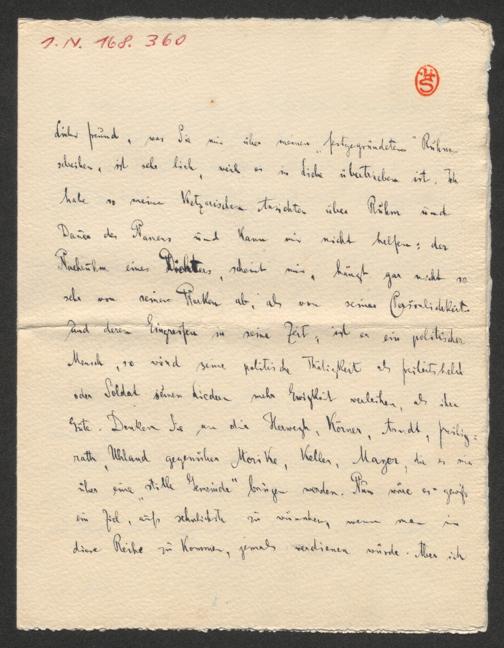 J. N. 168. 360
Lieber Freund, was Sie mir über meinen „festgegründeten" Ruhm
schreiben, ist sehr lieb, weil es in Liebe übertrieben ist. Ich
habe so meine Ketzerischen Ansichten über Ruhm und
Dauer des Namens und kann mir nicht helfen: der
Nachruhm eines Dichters, scheint mir, hängt gar nicht so
sehr von seinen Werken ab, als von seiner Persönlichkeit
und deren Eingreifen in seine Zeit; ist er ein politischer
Mensch, so wird seine politische Thätigkeit als Freiheitsheld
oder Soldat seinen Liedern mehr Ewigkeit verleihen, als ihre
Güte. Denken Sie an die Herwegh, Körner, Arndt, Freilig-
rath, Uhland gegenüber Mörike, Keller, Mayer, die es nie
über eine „stille Gemeinde" bringen werden. Nun wäre es gewiß
ein Ziel, aufs sehnlichste zu wünschen, wenn man in
diese Reihe zu kommen, jemals verdienen würde. Aber ich